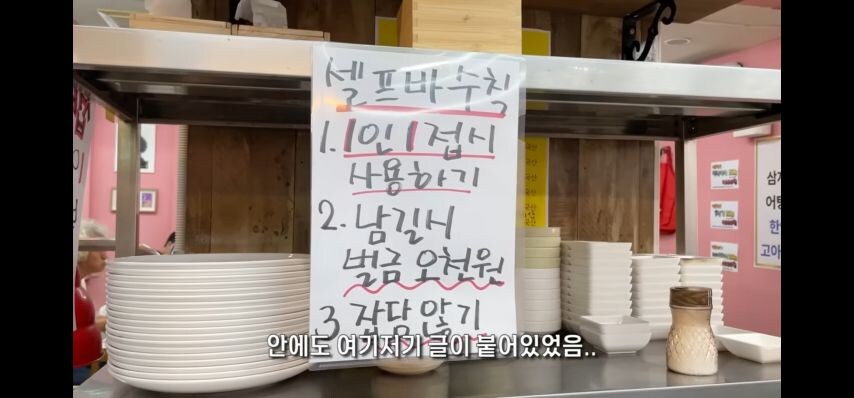 셀프바 수칙
1. 1인 1 접시
사용하기
2. 남길시
벌금 오천원
3 잡담 않기
안에도 여기저기 글이 붙어있었음..